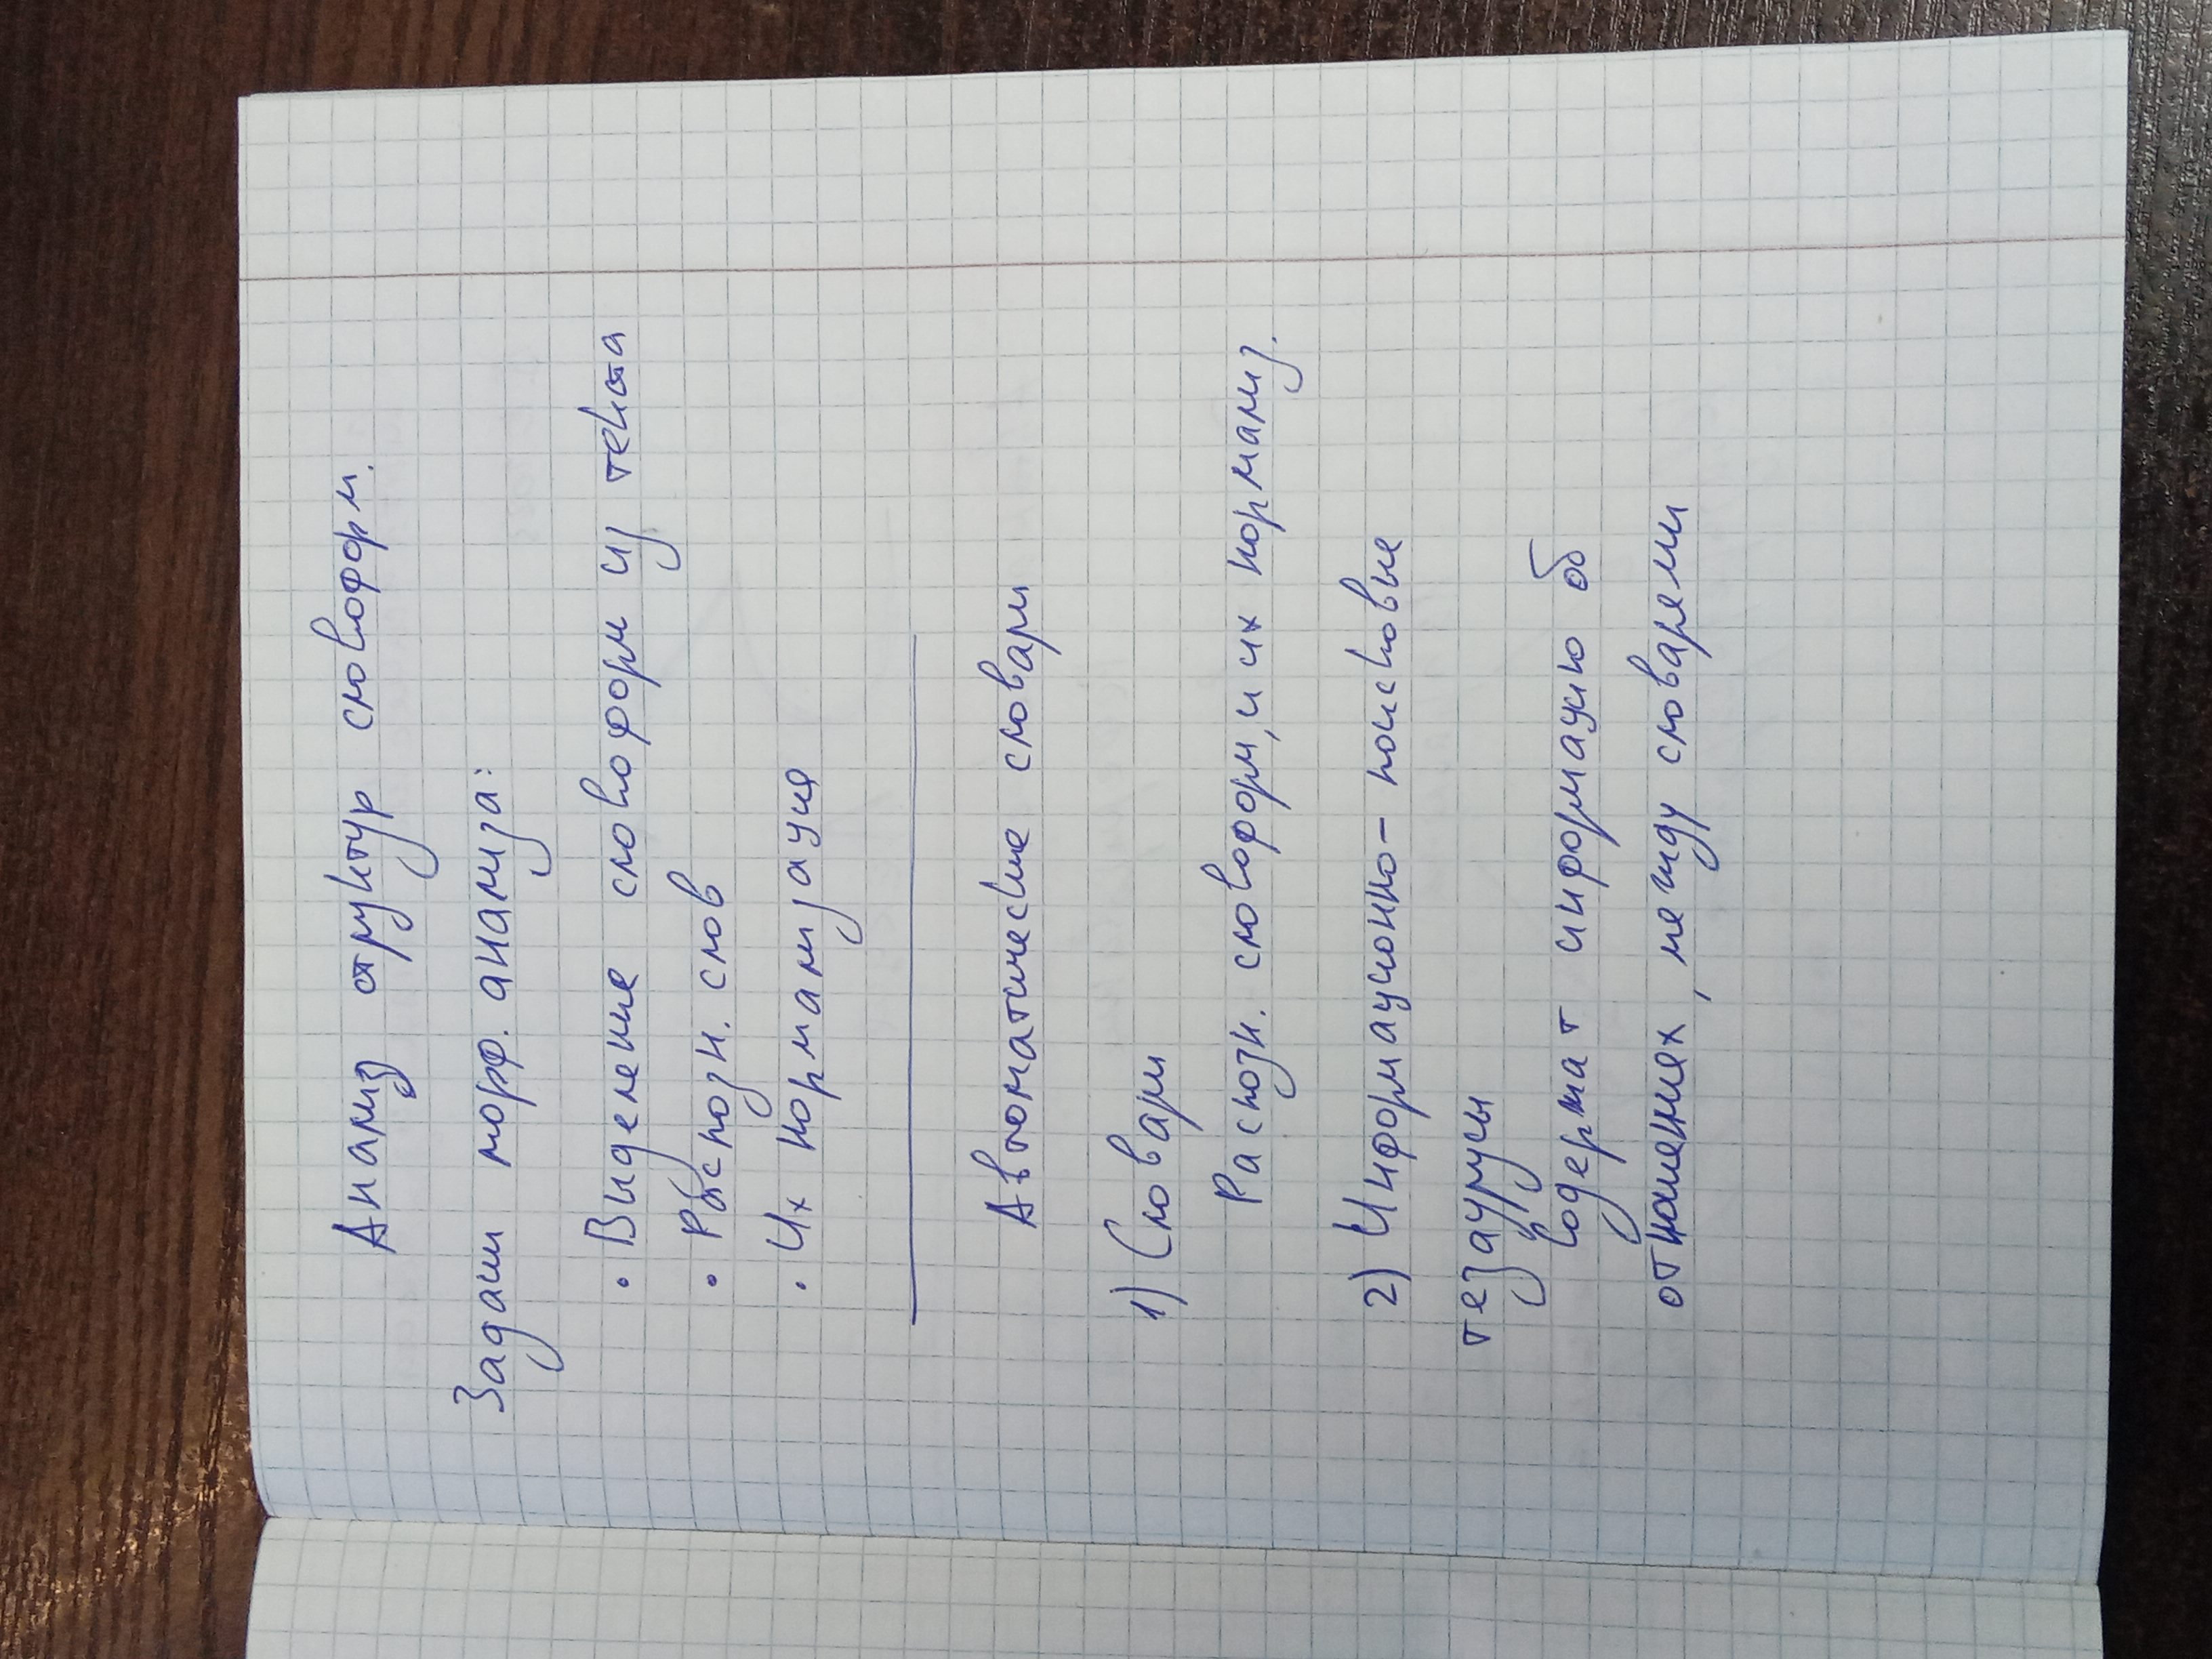 Анализ структур словоформ.
Задачи морф. анализа:
• Выделение словоформ из текста
• Распозн. слов
• Их нормализация
Автоматические словари
1) Словари
Распозн. словоформ, и их нормализ.
2) Информационно- поисковые
тезаурусы
Содержат информацию об
отношениях, между словарями